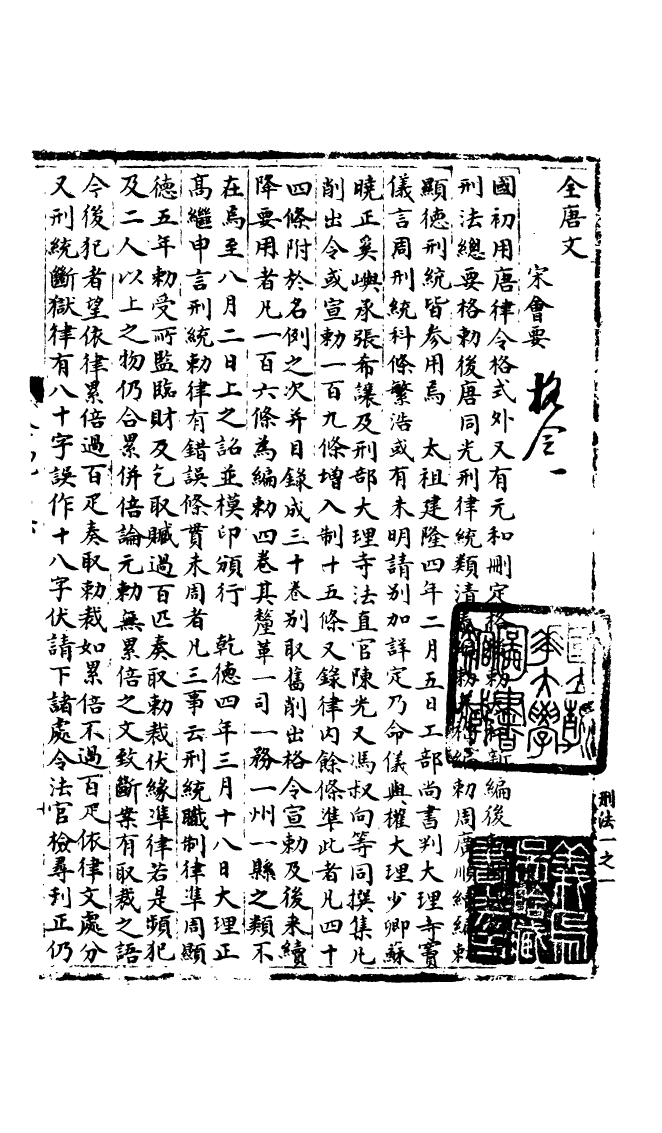 全唐文
宋會要
格令一
國初用唐律令格式外又有元和刪定格後勅新編後
刑法總要格勅後唐同光刑律統類清泰編勅周廣順續編勅
顯德刑統皆参用焉 太祖建隆四年二月五日工部尚書判大理寺竇
儀言周刑統科條繁浩或有未明請别加詳定乃命儀與權大理少卿蘇
曉正奚嶼承張希讓及刑部大理寺法直官陳光乂馮叔向等同撰集凡
削出令或宣勅一百九條增入制十五條又錄律内餘條準此者凡四十
四條附於名例之次并目錄成三十卷别取舊削出格令宣勅及後来續
降要用者凡一百六條為編勅四卷其釐革一司一務一州一縣之類不
在焉至八月二日上之詔並模印頒行 乾德四年三月十八日大理正
髙繼申言刑統勅律有錯誤條貫未周者凡三事云刑統職制律準周顯
德五年勅受所監臨財及乞取贓過百匹奏取勅裁伏緣準律若是頻犯
及二人以上之物仍合累併倍論元勅無累倍之文致斷案有取裁之語
今後犯者望依律累倍過百疋奏取勅裁如累倍不過百疋依律文處分
又刑統斷獄律有八十字誤作十八字伏請下諸處令法官檢尋刊正仍
刑法一之一